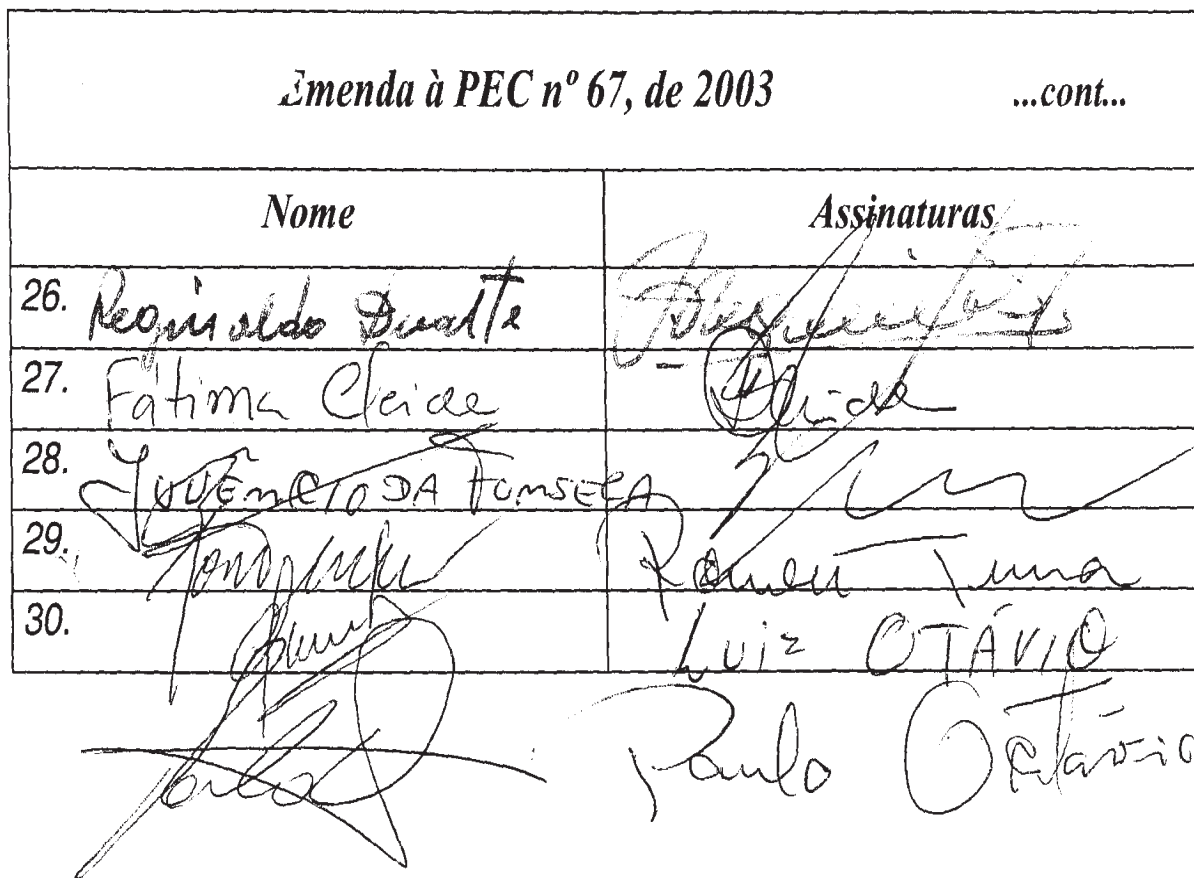 Emenda à PEC nº 67, de 2003 ...cont...
Nome Assinaturas
26. Reginaldo Duarte
27. Fátima Cleide Cleide
28. JUVÊNCIO DA FONSECA
29. Romeu Tuma
30. LUIZ OTÁVIO
Paulo Octávio